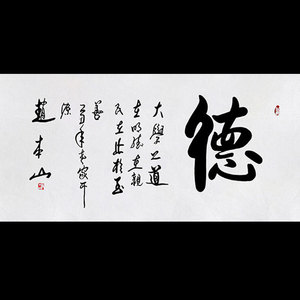 德
大學之道
在明德在親
民在止於至
善
趙本山